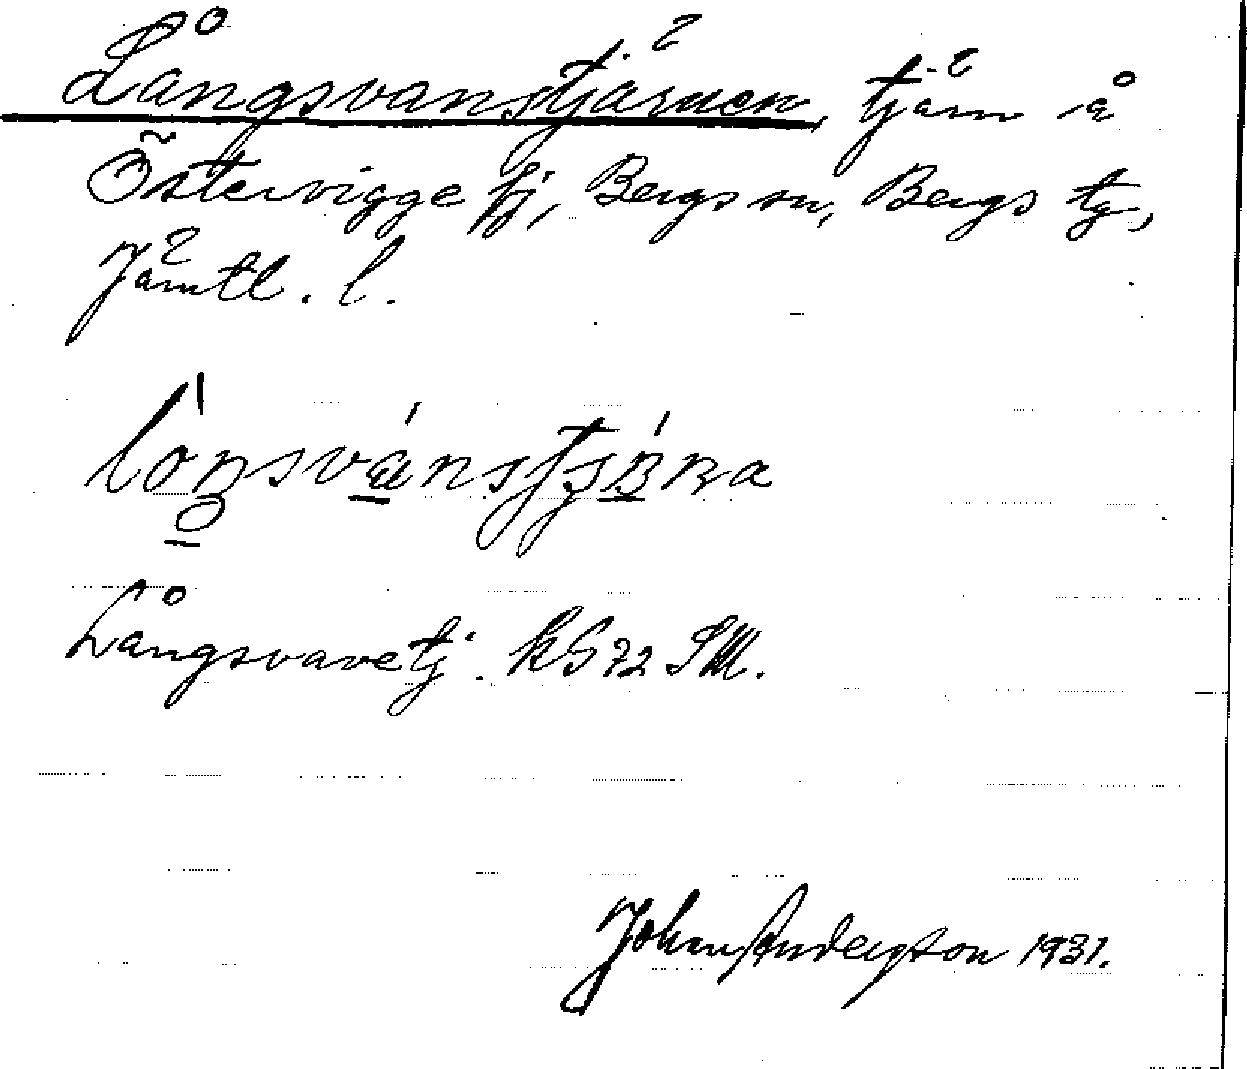 Långsvanstjärnen, tjärn å
Östervigge fj, Bergs sn, Bergs tg,
Jämtl. l.
Långsvavetj. KS72 SM.
John Anderson 1931.